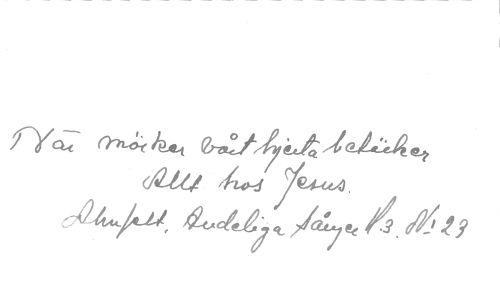 När mörker vårt hjerta betäcker
Allt hos Jesus.
Ahnfelt, Andeliga sånger H 3. No 23